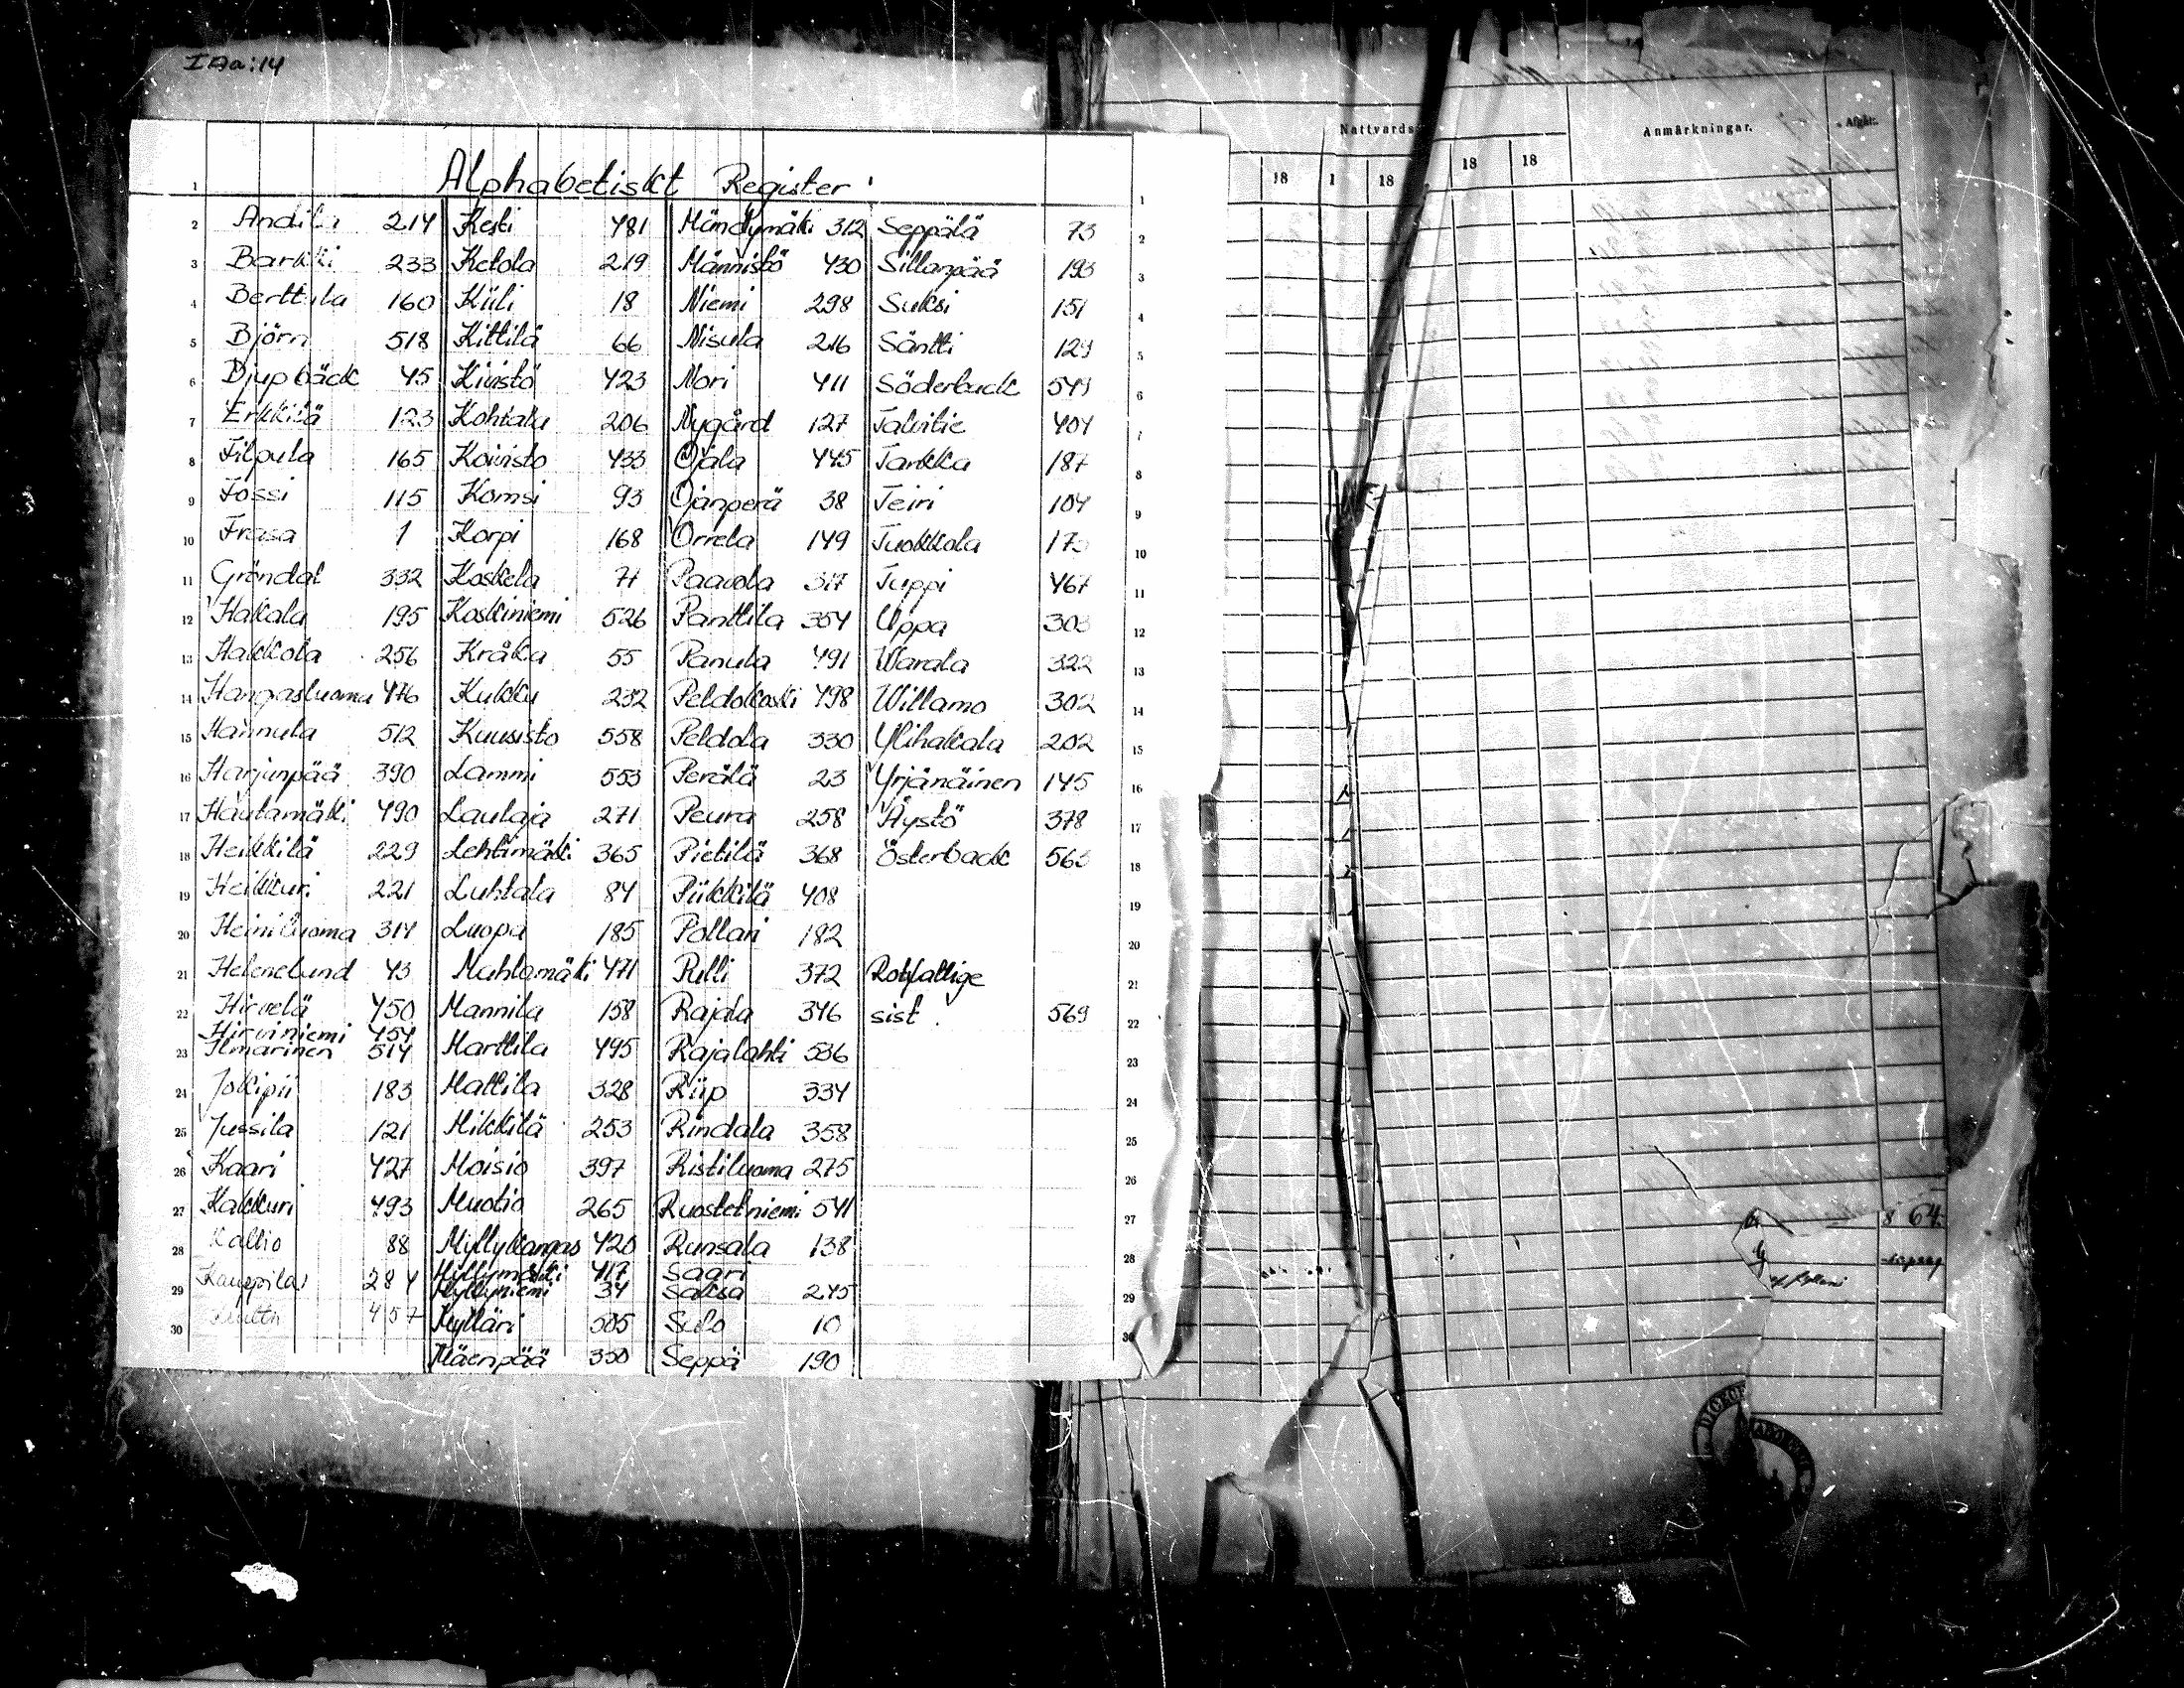 I Aa:14
Alphabetiskt Register
Andila 214
Barkki 233
Berttula 160
Björn 518
Djupbäck 45
Erkkilä 123
Filpula 165
Fossi 115
Frasa 1
Gröndal 332
Hakala 195
Hakkola 256
Hangasluoma 476
Hannula 512
Harjunpää 390
Hautamäki 490
Heikkilä 229
Heikkuri 221
Heiniluoma 314
Helenelund 43
Hirvelä 450
Hirviniemi 454
Ilmarinen 514
Jokipii 183
Jussila 121
Kaari 427
Kakkuri 493
Kallio 88
Kauppila 284
457
Kesti 481
Ketola 219
Kiili 18
Kittilä 66
Kivistö 423
Kohtala 206
Koivisto 433
Komsi 93
Korpi 168
Koskela 77
Koskiniemi 526
Kråka 55
Kukku 232
Kuusisto 558
Lammi 553
Laulaja 271
Lehtimäki 365
Luhtala 84
Luopa 185
Mahlamäki 471
Mannila 158
Marttila 495
Mattila 328
Mikkilä 253
Moisio 397
Muotio 265
Myllykangas 420
Myllymäki 417
Myllyniemi 34
Mylläri 505
Mäenpää 350
Mändymäki 312
Männistö 430
Niemi 298
Nisula 216
Nori 411
Nygård 127
Ojala 445
Ojanperä 38
Orrela 149
Paavola 317
Panttila 354
Panula 491
Peldokoski 498
Peldola 330
Perälä 23
Peura 258
Pietilä 368
Piikkilä 408
Pollari 182
Pulli 372
Rajala 346
Rajalahti 536
Riip 334
Rindala 358
Ristiluoma 275
Ruostetniemi 541
Runsala 138
Saari
Saksa 245
Salo 10
Seppä 190
Seppälä 73
Sillanpää 193
Suksi 151
Säntti 129
Söderback 549
Talvitie 404
Tarkka 187
Teiri 104
Tuokkola
Tuppi 467
Uppa 303
Warala 322
Willamo 302
Ylihakala 202
Yrjänäinen 145
Äystö 378
Österback 563
Rotfattige
sist. 569
1
2
3
4
5
6
7
8
9
10
11
12
13
14
15
16
17
18
19
20
21
22
23
24
25
26
27
28
29
30
Nattvards
Anmärkningar.
Afgått.
18 1 18 18 18
64.